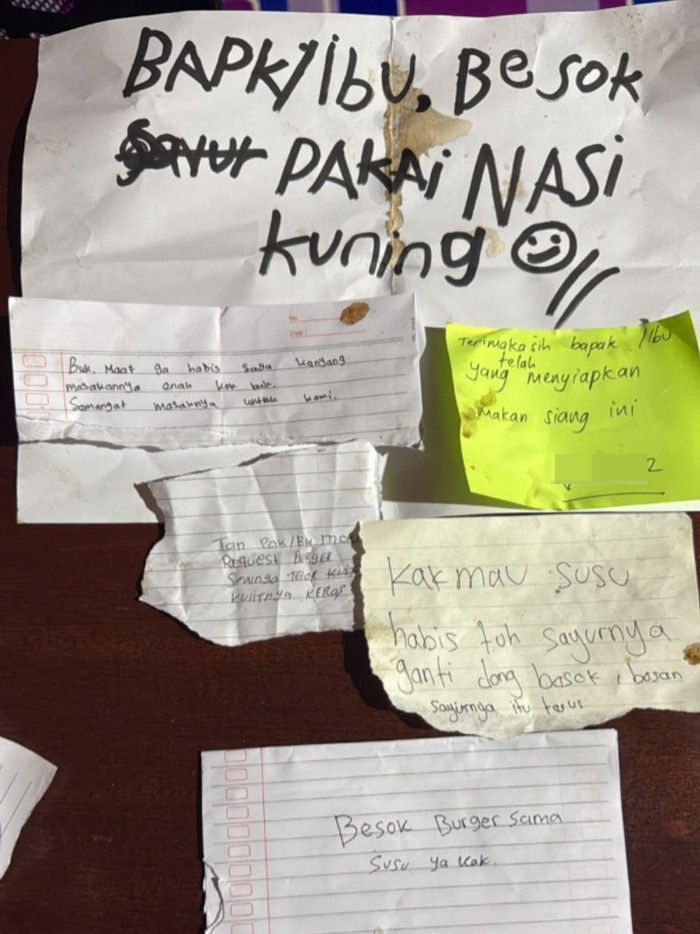 BAPK/ibu, Besok
Sayur PAKAi NASi
kuning
No
Date:
Buk. Maaf ga habis saya kenyang
masakannya enak kok buk.
Semangat masaknya untuk kami.
Terimakasih bapak /Ibu
telah
yang menyiapkan
makan siang ini
2
Pak/Bu
Request BURGER
TELOR
KULITNYA KERAS
Kak mau susu
habis tuh sayurnya
ganti dong besok, bosan
sayurnya itu terus
Besok Burger Sama
Susu ya kak.